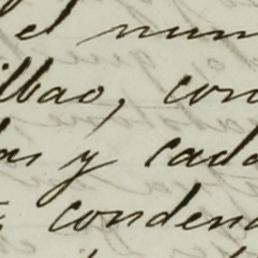 el num
ilbao, con
las y cada
condena